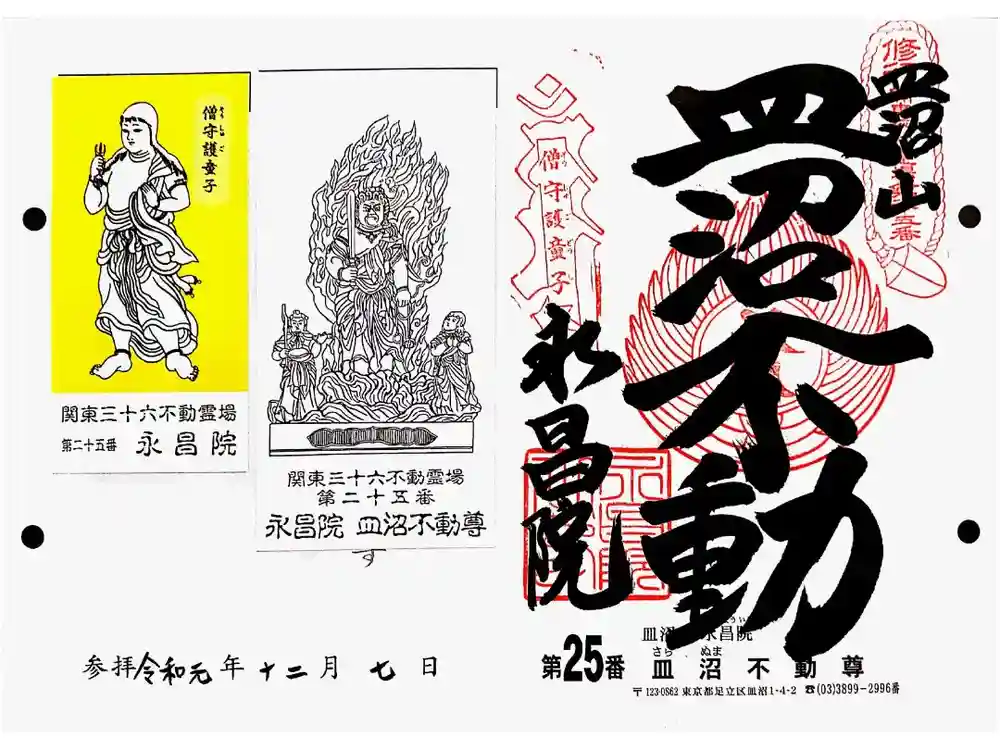 僧守護童子
そうしゅご
関東三十六不動霊場
第二十五番 永昌院
関東三十六不動霊場
第二十五番
永昌院 皿沼不動尊
す
参拝令和元年十二月七日
皿沼山
皿沼不動
永昌院
僧守護童子
第25番 皿沼不動尊
さら ぬま
〒123-0862 東京都足立区皿沼1-4-2 ☎(03)3899-2996番